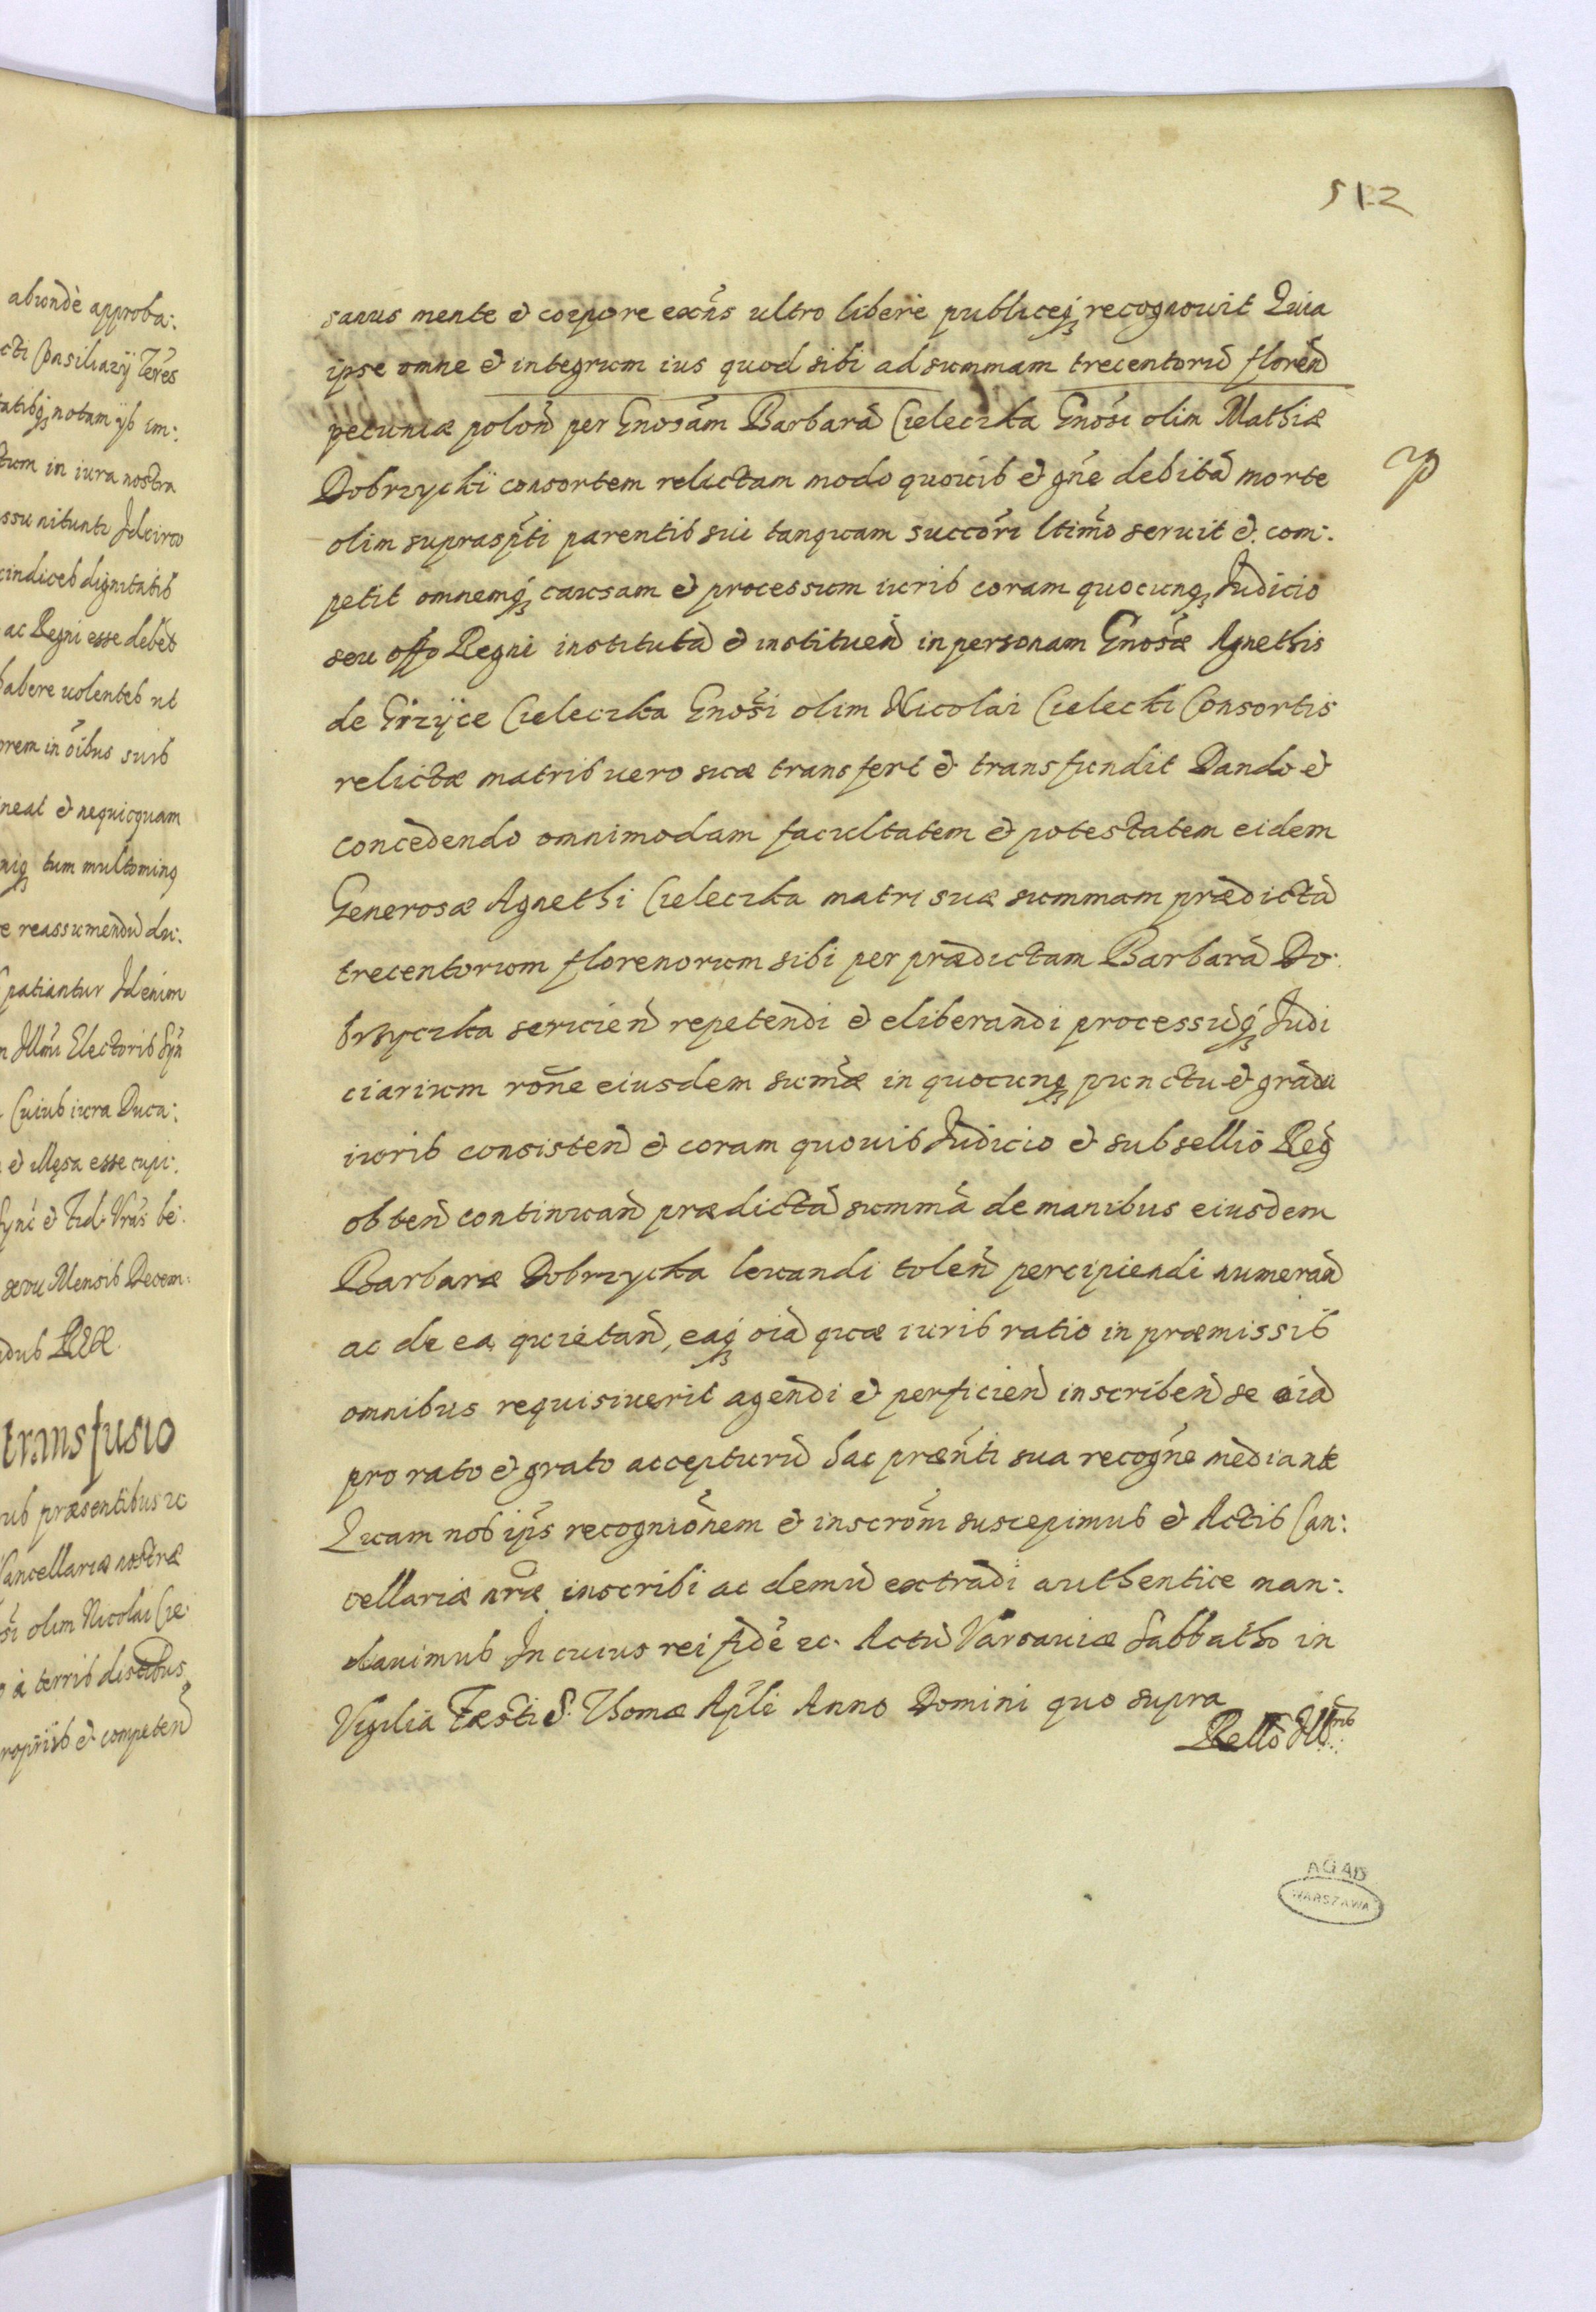 abundè approba:
cti Consiliarÿ Teres
tatibq notam ijs im:
tum in iura nostra
ssu nitunt Idcirco
vindices dignitatis
ac Regni esse debet
habere uolentes ut
orem in oibus suis
ineat et nequicquam
niq tum multoming
e reassumendũ du:
patiantur Id enim
n Illmi Electoris Syn
Cuius iura Duca:
et illęsa esse cupi:
Sync et Fid. Vras be:
Mensis Decem:
transfusio
præsentibus zc
Cancellariæ nostræ
si olim Nicolai Cie:
à terris discibus
roprijs et competen
512
sanus mente et corpore exñs ultro liberè publiceq recognouit Quia
ipse omne et integrum ius quod sibi ad summam trecentorũ floren
pecuniæ polon per Gnosam Barbarã Cieleczka Gnosi olim Mathiæ
Dobrzyckï consortem relictam modo quouis et gñe debitã morte
olim suprascpti parentis sui tanquam succōri ltimo seruit et com:
petit omnemq causam et processum iuris coram quocunq Iudicio
seu offo Regni institutã et instituen in personam Gnosæ Agnethis
de Grzÿce Cieleczka Gnosi olim Nicolai Cielecki Consortis
relictæ matris uero suæ transfert et transfundit Dando et
concedendo omnimodam facultatem et potestatem eidem
Generosæ Agnethi Cieleczka matri suæ summam prædictã
trecentorum florenorum sibi per prædictam Barbarã Do:
brzyczka seruien repetendi et eliberandi processũq Iudi
ciarium rōne eiusdem sumæ in quocunq punctu et gradu
iuris consisten et coram quouis Iudicio et subsellio Reg
obten continuan prædictã summã de manibus eiusdem
Barbaræ Dobrzycka leuandi tolen percipiendi numeran
ac de ea quietan, eaq oia quæ iuris ratio in præmissis
omnibus requisiuerit agendi et perficien inscriben se oia
pro rato et grato accepturũ hac præñti sua recogñe mediante
Quam nos ipśs recogniōnem et inscrōm suscepimus et Actis Can:
cellariæ nræ inscribi ac demũ extradi authentice man:
dauimus In cuius rei fidē zc. Actũ Varsauiæ Sabbatho in
Vigilia Fæsti S. Thomæ Apli Anno Domini quo supra
AGAD
WARSZAWA